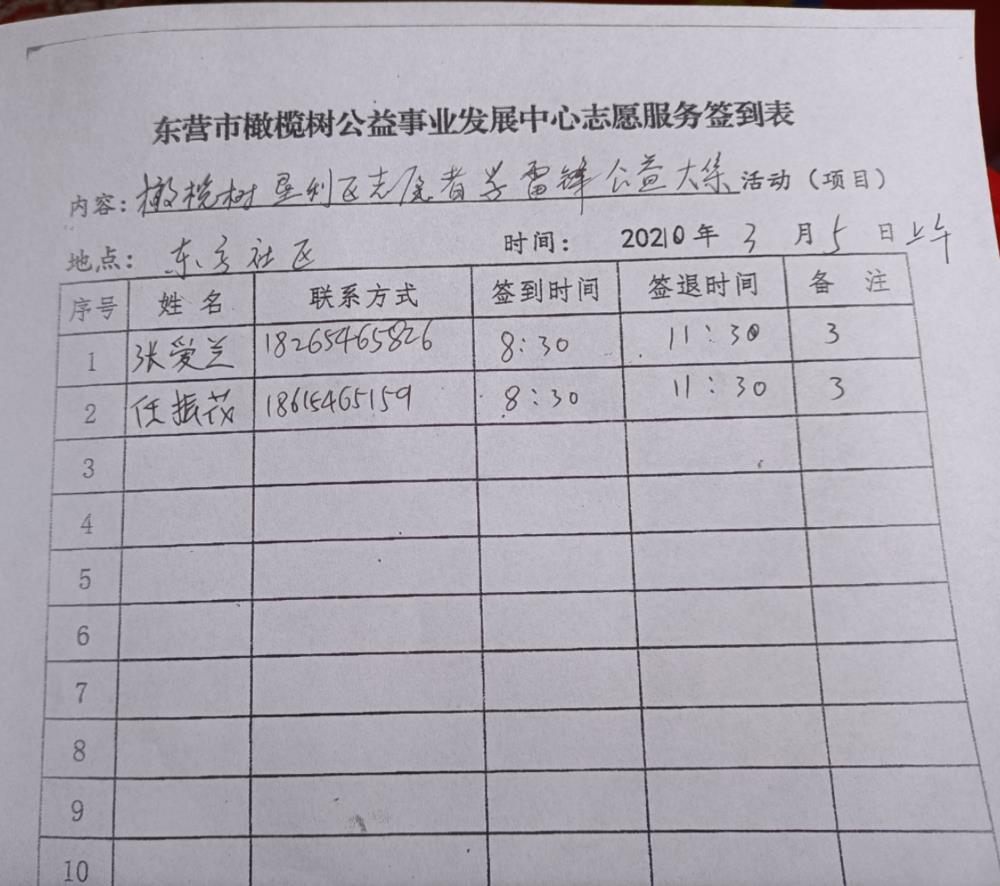 东营市橄榄树公益事业发展中心志愿服务签到表
内容：橄榄树垦利区志愿者学雷锋公益大集活动（项目）
地点：东方社区 时间： 2021年3月5日上午
序号 姓名 联系方式 签到时间 签退时间 备注
1 张爱兰 18265465826 8:30 11:30 3
2 任振茂 18615465159 8:30 11:30 3
3
4
5
6
7
8
9
10